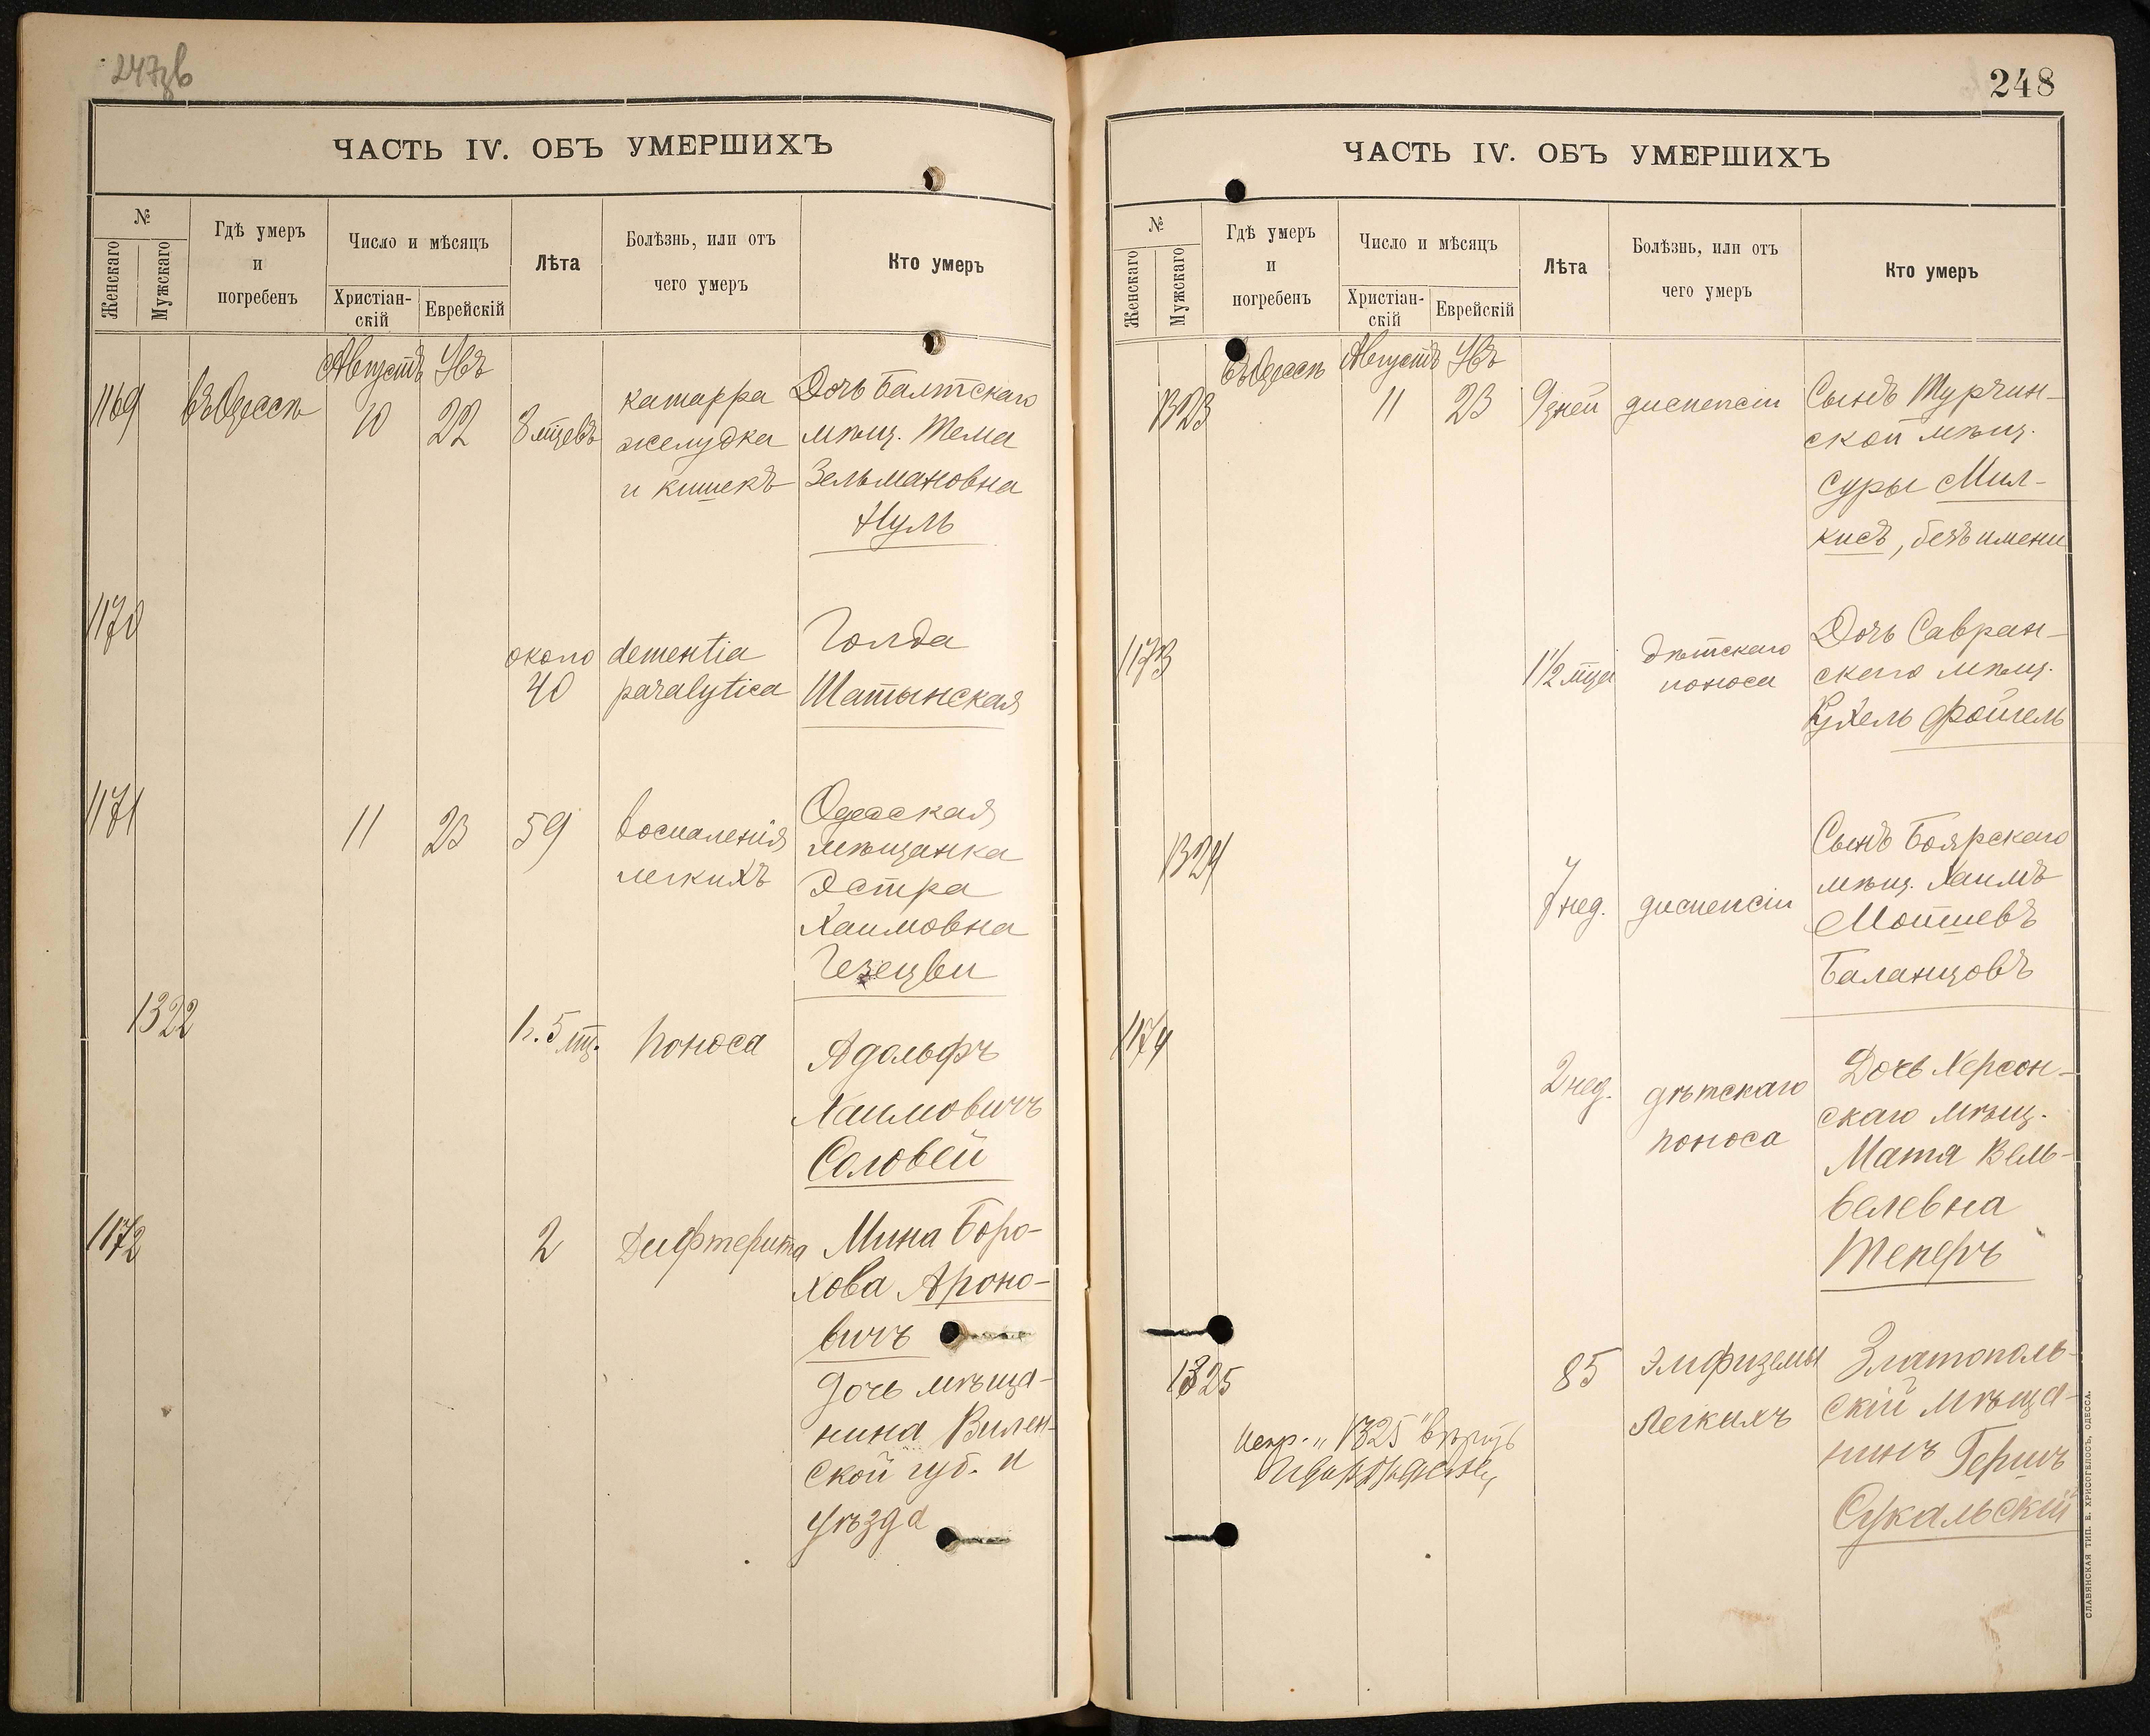 247зв
ЧАСТЬ IV. ОБЪ УМЕРШИХЪ
№
Женскаго
Мужскаго
Гдѣ умеръ
и
погребенъ
Число и мѣсяцъ
Христіан-
скій
Еврейскій
Лѣта
Болѣзнь, или отъ
чего умеръ
Кто умеръ
1169
въ Одессѣ
Августъ
10
Увъ
22
8 мцевъ
катарра
желудка
и кишекъ
Дочь Балтскаго
мѣщ. Тема
Зельмановна
Нуль
1170
около
40
dementia
paralytica
Голда
Шатынская
1171
11
23
59
воспаленія
легкихъ
Одесская
мѣщанка
Эстра
Хаимовна
Гезецви
1322
1г. 5 мц.
поноса
Адольфъ
Хаимовичъ
Соловей
1172
2
Дифтерита
Мина Боро-
хова Ароно-
вичъ
дочь мѣща-
нина Вилен-
ской губ. и
уѣзда
248
ЧАСТЬ IV. ОБЪ УМЕРШИХЪ
№
Женскаго
Мужскаго
Гдѣ умеръ
и
погребенъ
Число и мѣсяцъ
Христіан-
скій
Еврейскій
Лѣта
Болѣзнь, или отъ
чего умеръ
Кто умеръ
1323
въ Одессѣ
Августъ
11
Увъ
23
9 дней
диспепсіи
Сынъ Турчин-
ской мѣщ.
Суры Мил-
кисъ, безъ имени
1173
1 1/2 мца
дѣтскаго
поноса
Дочь Савран-
скаго мѣщ.
Рухель Фойгель
1324
7 нед.
диспепсіи
Сынъ Боярскаго
мѣщ. Хаимъ
Мошиевъ
Баланцовъ
1174
2 нед.
дѣтскаго
поноса
Дочь Херсон-
скаго мѣщ.
Матя Вель-
велевна
Текеръ
1325
85
эмфиземы
легкихъ
Златополь-
скій мѣща-
нинъ Гершъ
Сукальскій
испр. „1325" вѣрить
СЛАВЯНСКАЯ ТИП. Е. ХРИСОГЕЛОСЪ, ОДЕССА.